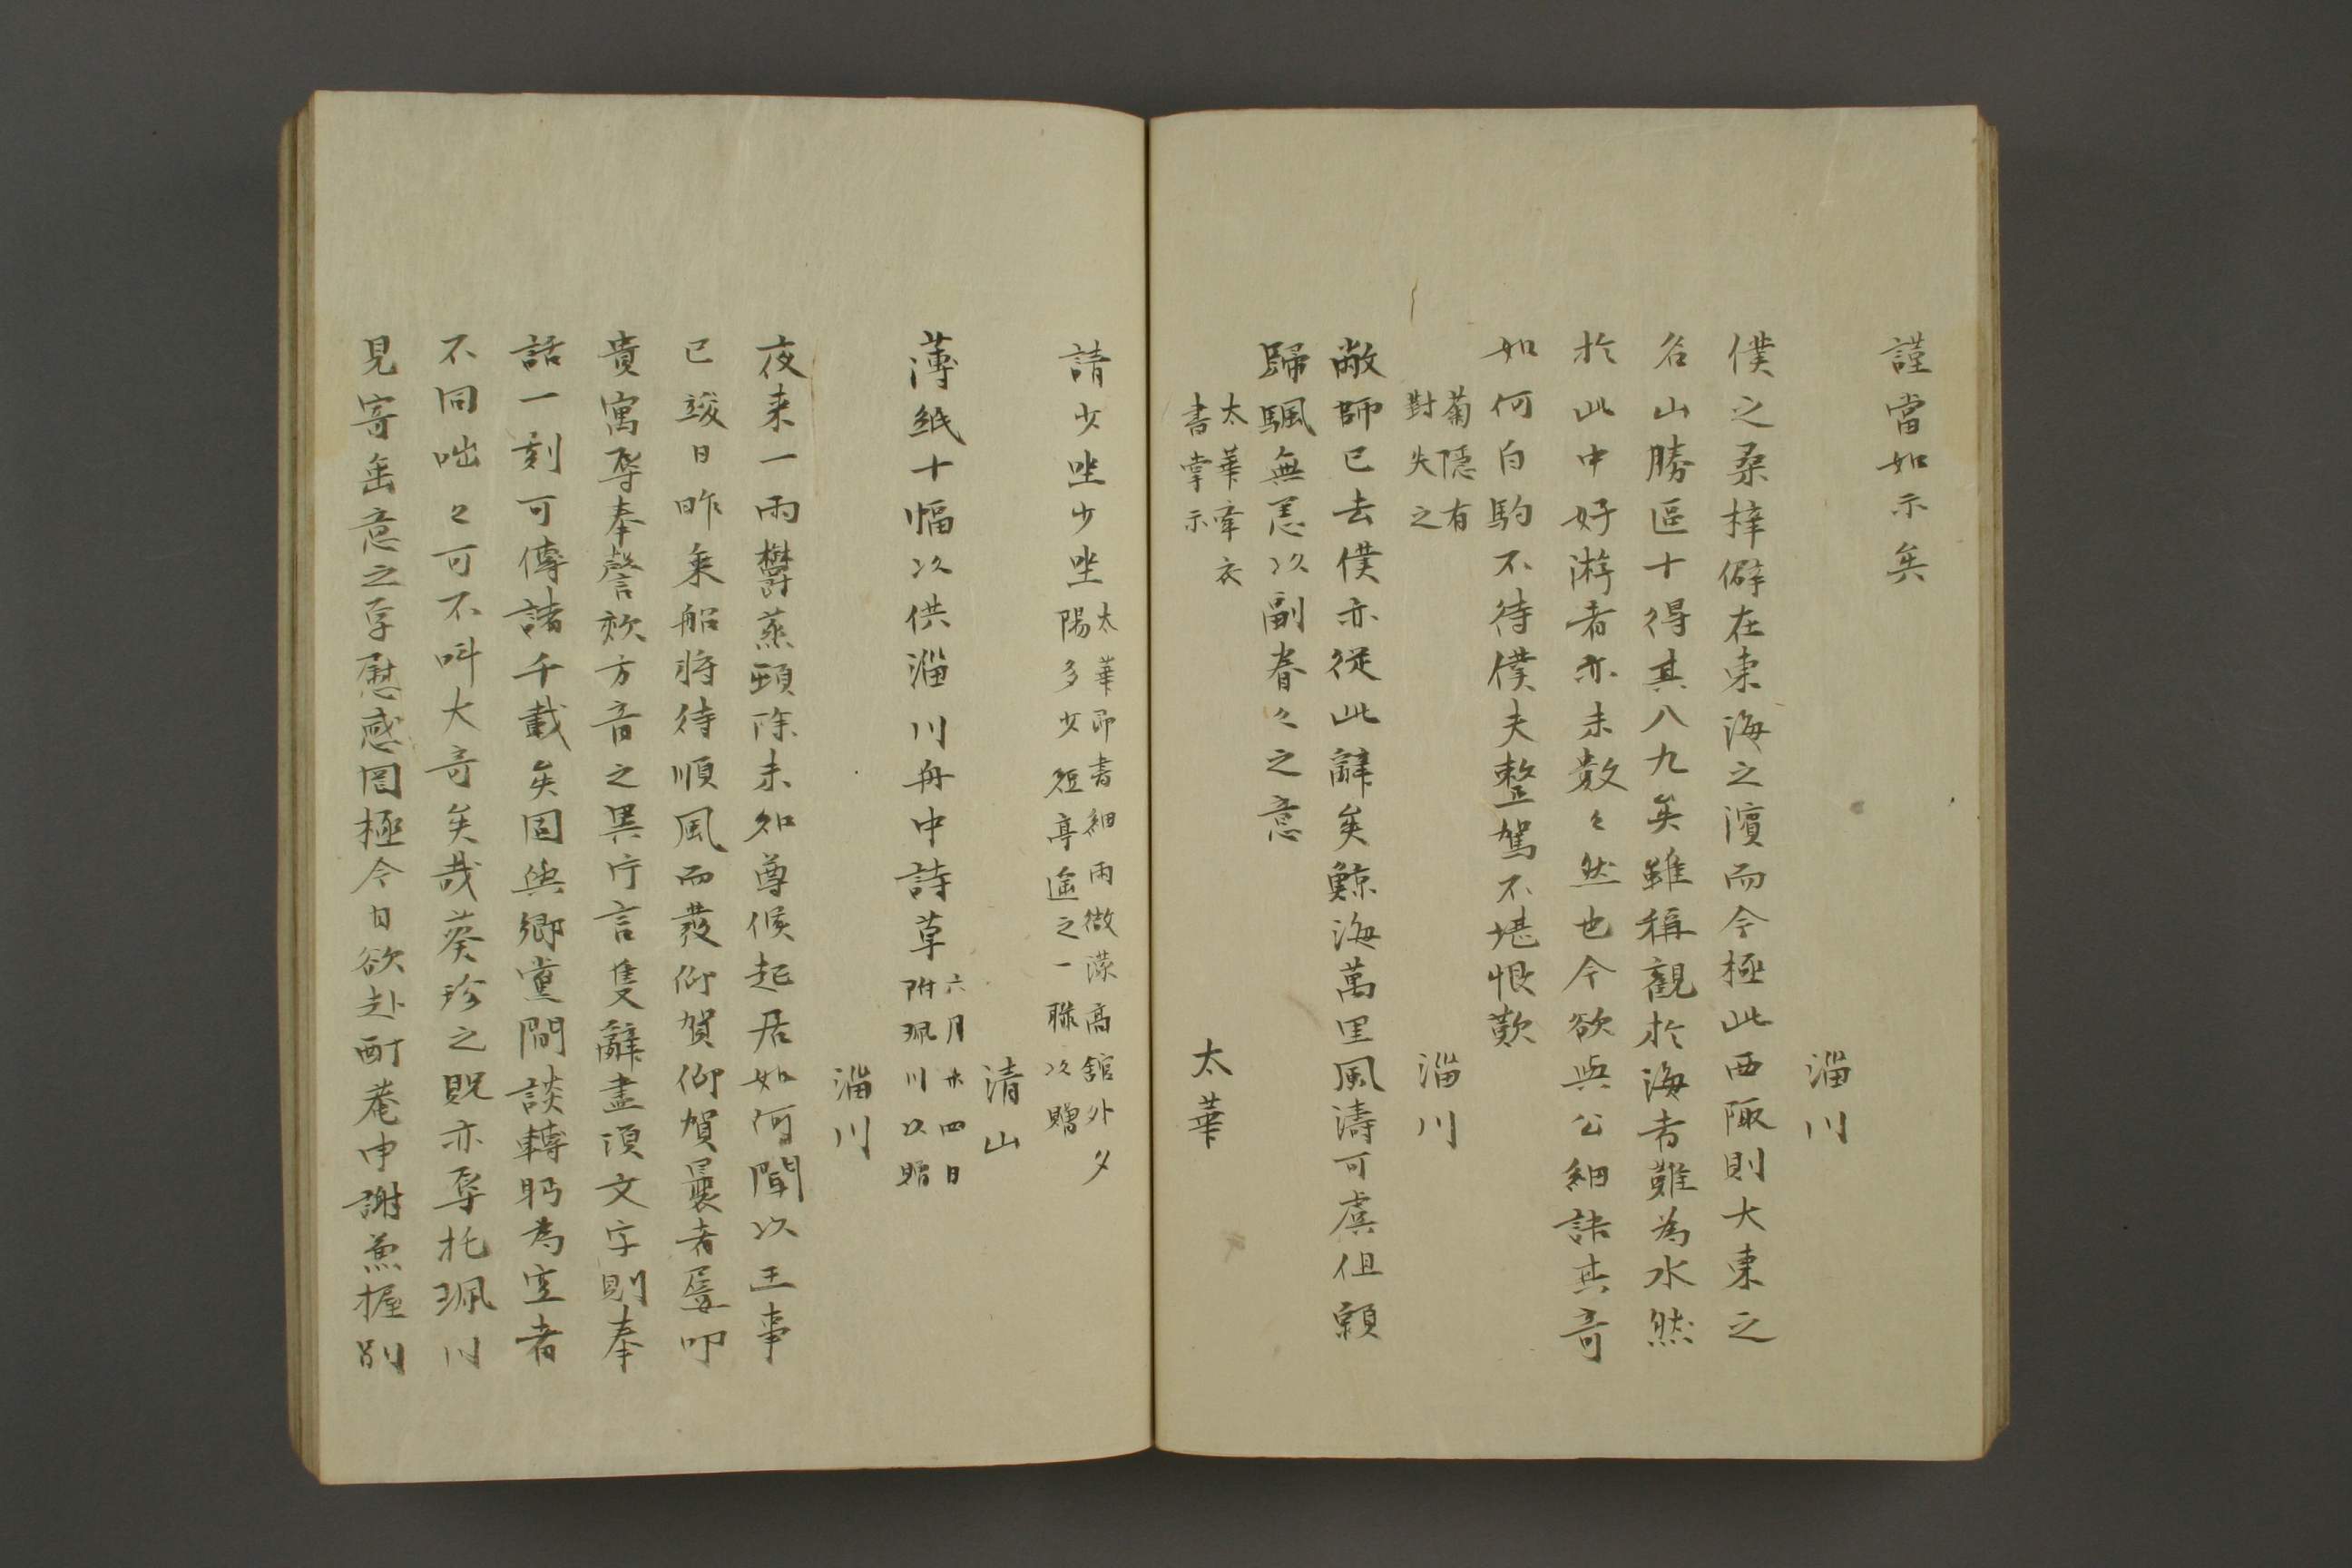 謹當如示矣
淄川
僕之桑梓僻在東海之濱而今極此西陬則大東之
名山勝區十得其八九矣雖稱觀於海者難為水然
於此中好游者亦未數々然也今欲與公細詰其奇
如何白駒不待僕夫整駕不堪恨歎
菊隱有
對失之
淄川
敝師已去僕亦從此辭矣鯨海萬里風濤可虞但顙
歸颿無恙以副眷々之意
太華牽衣
書掌示
太華
請少唑少唑
太華即書細雨微濛高舘外夕
陽多少短亭途之一聯以贈
清山
薄紙十幅以供淄川舟中詩草
六月廿四日
附珮川以贈
淄川
夜来一雨欝蒸頭除未知尊候起居如何聞以王事
已竣日昨乘船将待順風而發仰賀仰賀曩者屢叩
貴寓辱奉謦欬方音之異片言隻辭盡須文字則奉
話一刻可傳諸千載矣固與鄉黨間談轉眄為空者
不同咄々可不叫大奇矣哉葵珍之貺亦辱托珮川
見寄缶意之厚慰感罔極今日欲赴酊菴申謝兼握別